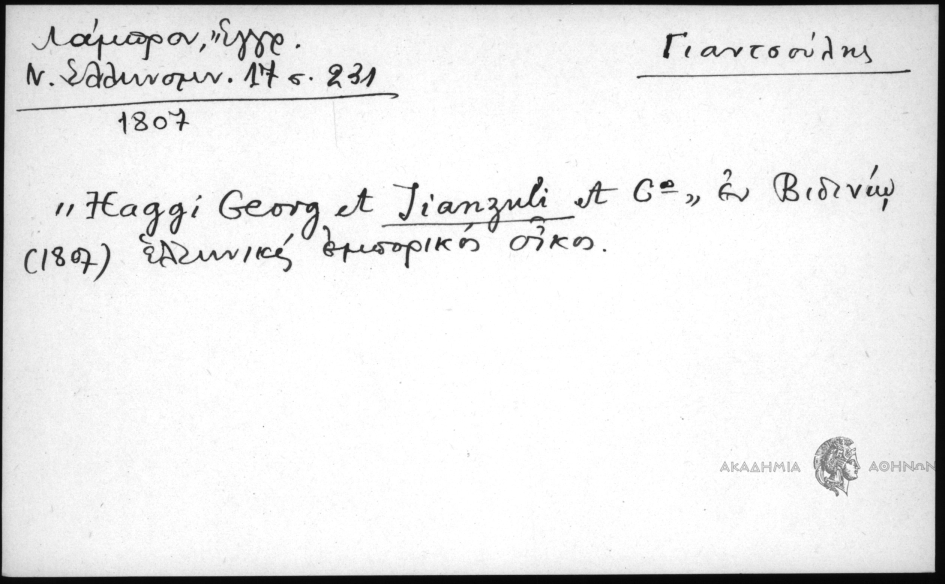 Λάμπρου, Ἔγγρ.
Γιαντσούλης
Ν. Ἑλληνομν. 17 σ. 231
1807
„Haggi Georg et Jianzuli et Cº„ ἐν Βιδινίῳ
(1807) ἑλληνικὸς ἐμπορικὸς οἶκος.
ΑΚΑΔΗΜΙΑ ΑΘΗΝΩΝ